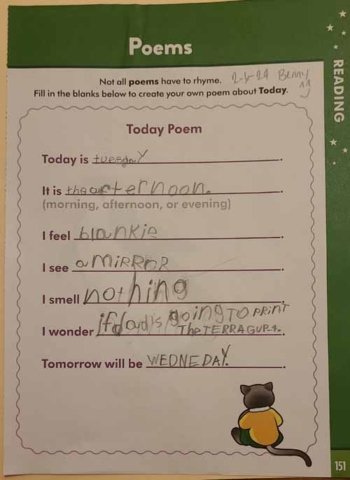 Poems
Not all poems have to rhyme.
Fill in the blanks below to create your own poem about Today.
Benny
READING
Today Poem
Today is tuesday.
It is the afternoon.
(morning, afternoon, or evening)
I feel blankie.
I see a MIRROR.
I smell nothing.
I wonder if dad is going TO PRINT
The TERRAGUR.
Tomorrow will be WEDNEDAY.
151